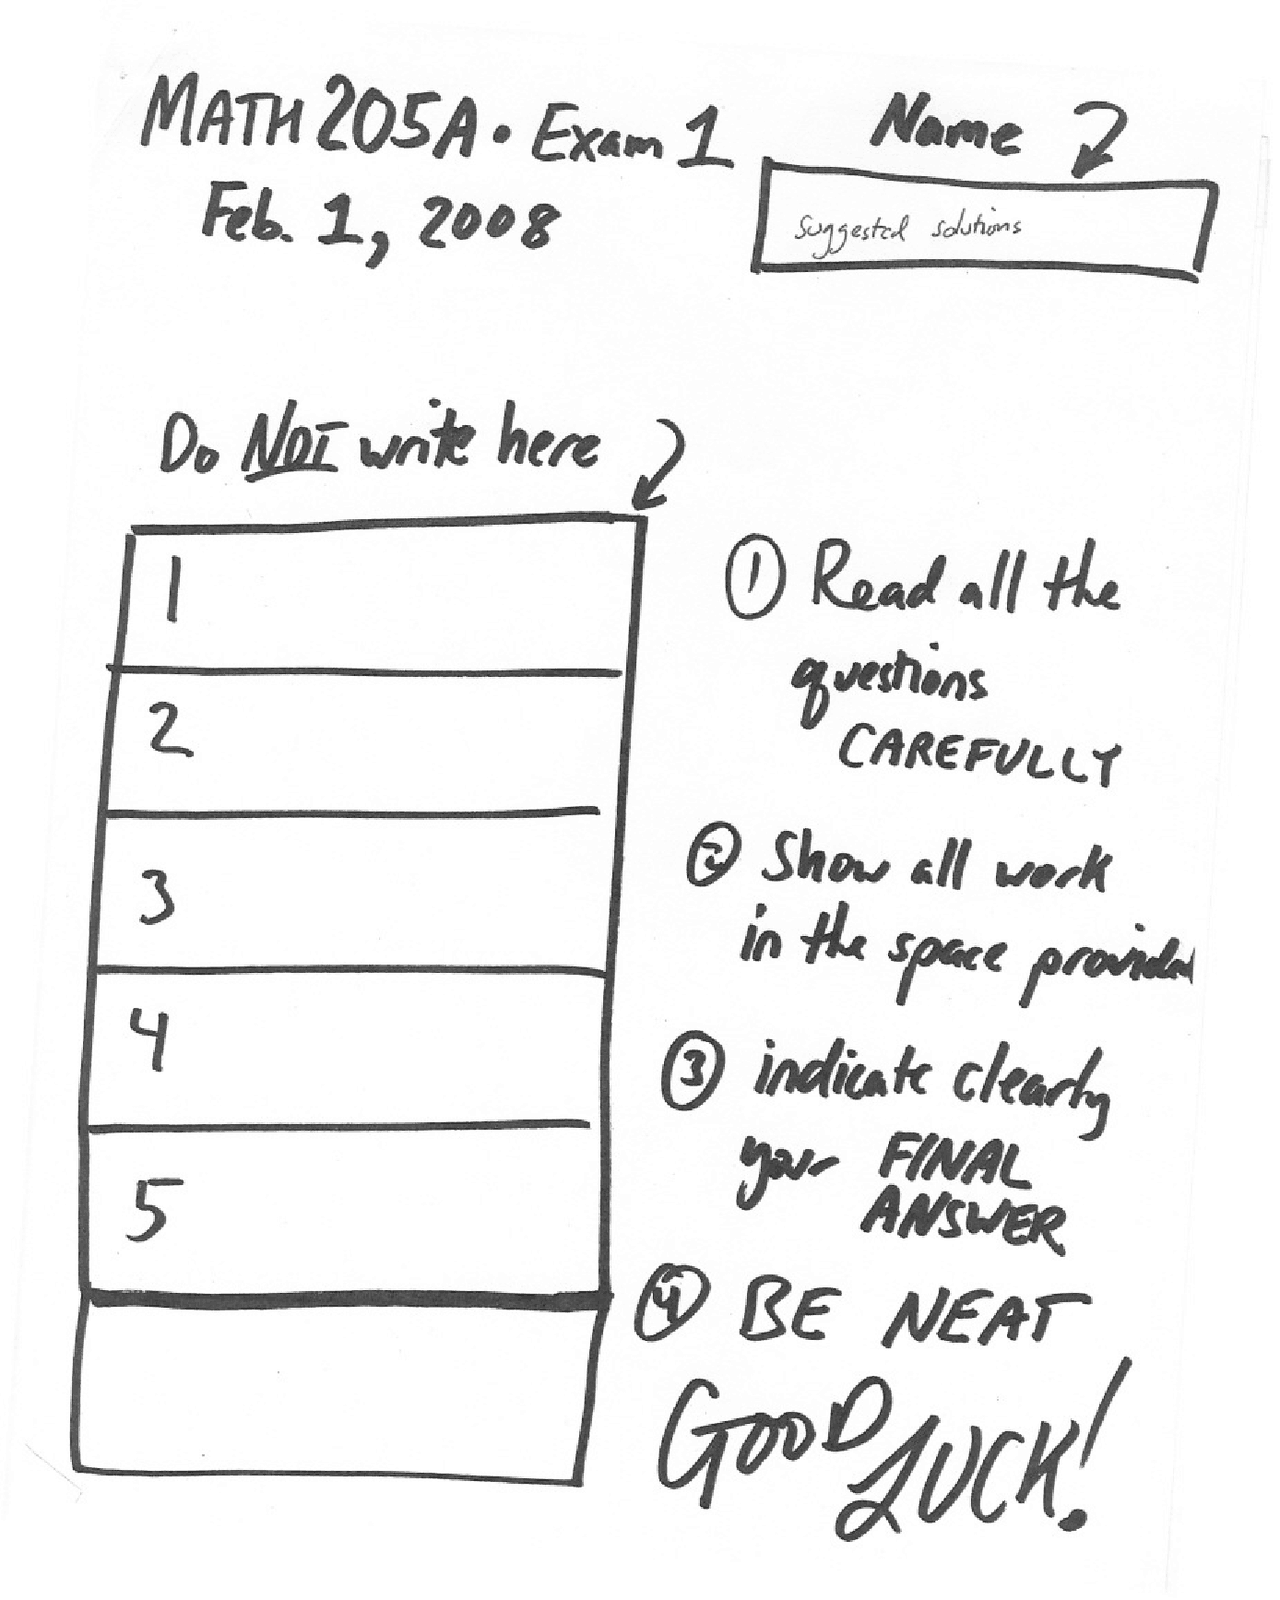 MATH 205A • Exam 1
Feb. 1, 2008
Name
suggested solutions
Do NOT write here
1
2
3
4
5
① Read all the
questions
CAREFULLY
② Show all work
in the space provided
③ indicate clearly
your FINAL
ANSWER
④ BE NEAT
GOOD LUCK!